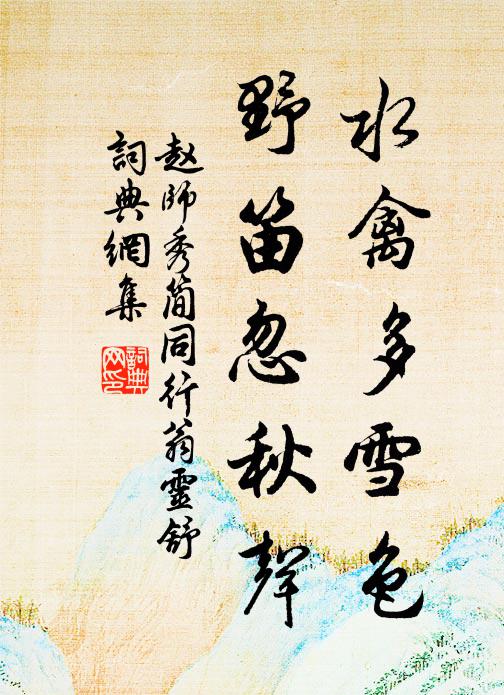 水禽多雪色
野笛忽秋聲
赵師秀简同行翁靈舒
詞典網集
詞典網印